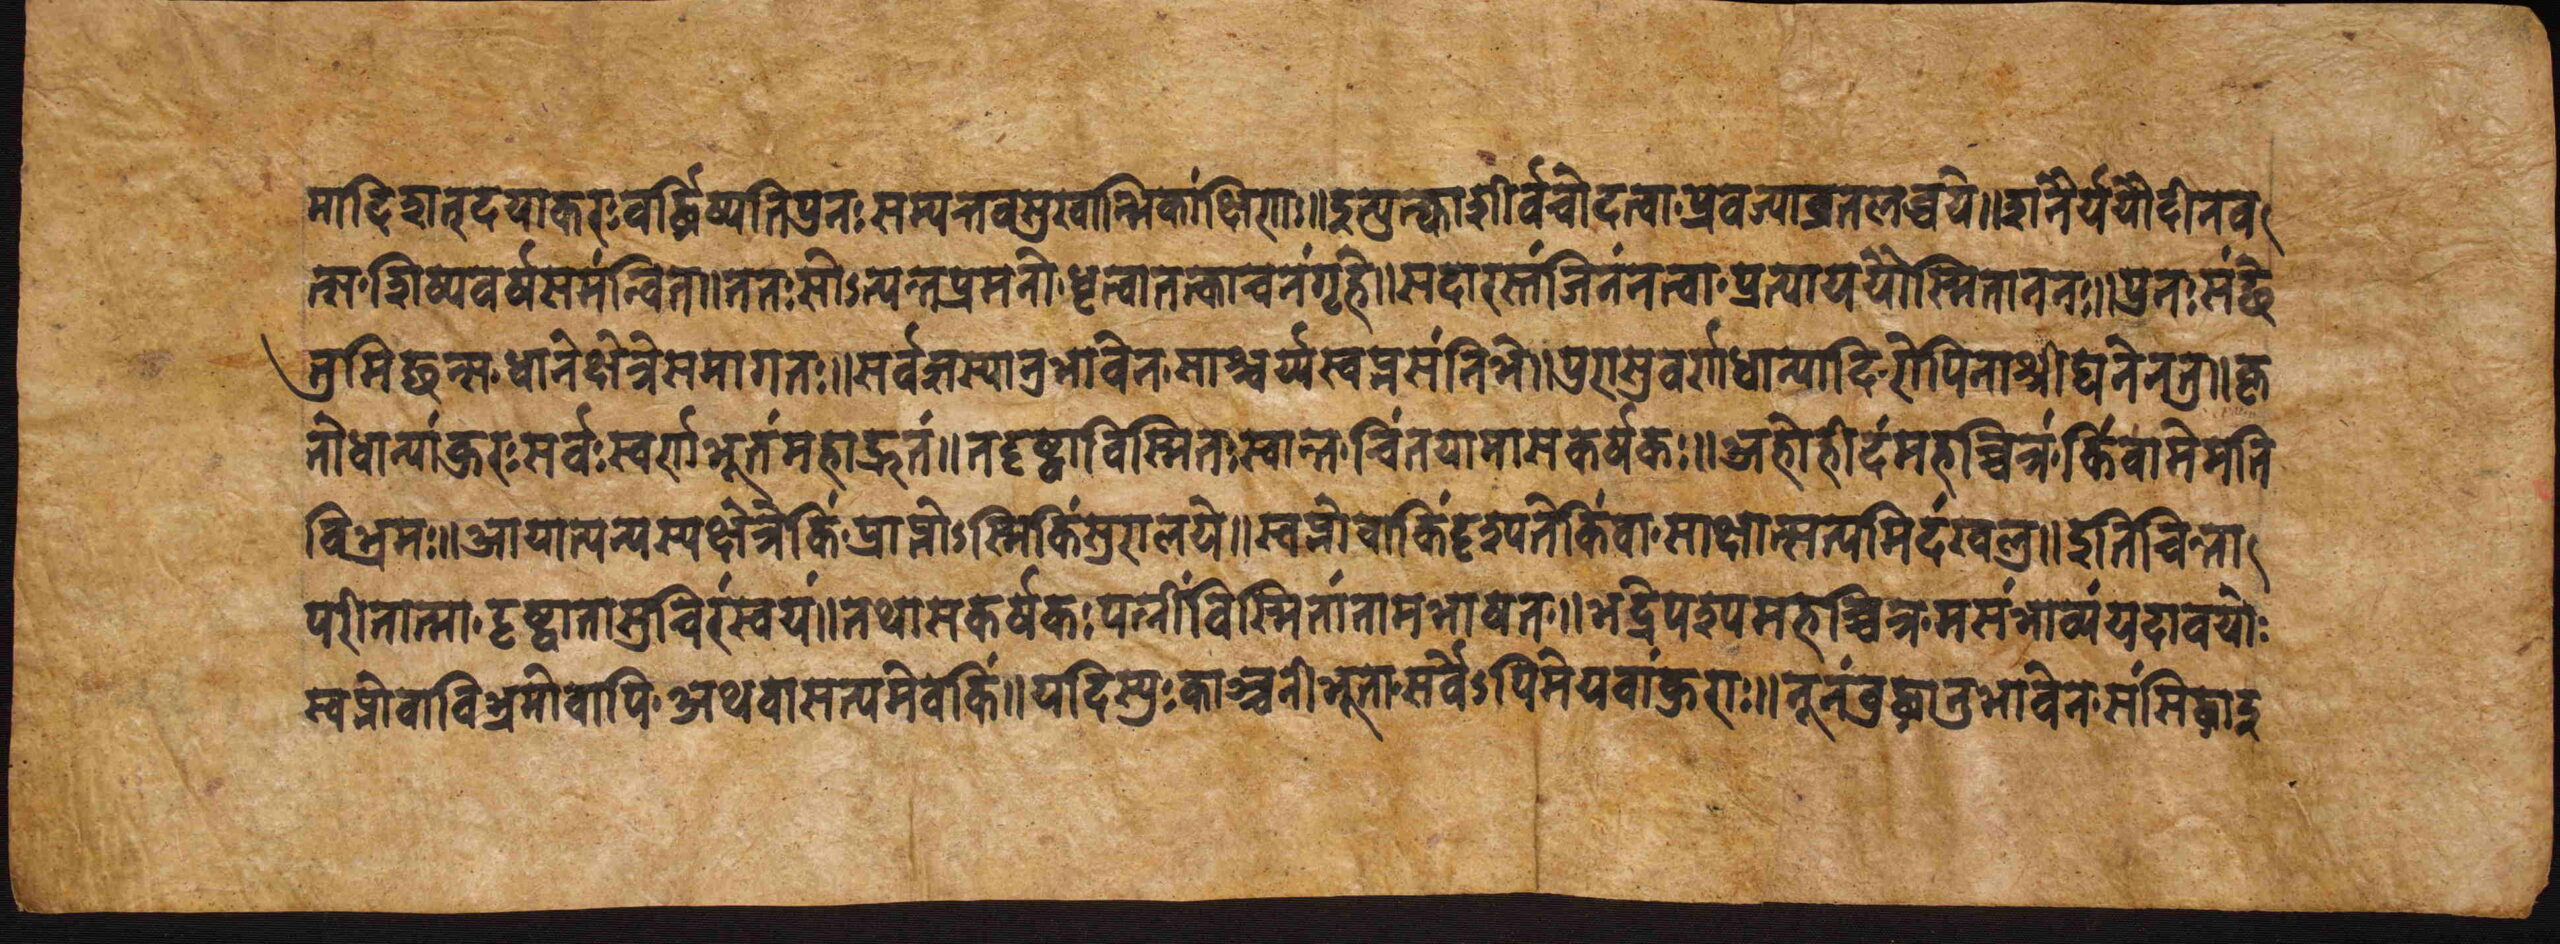 मादिशत्दयाकरः वर्द्धिष्यतिपुनः सम्पन्नवसुखान्भिकांक्षिणाः॥ इत्युत्क्वाशीर्वचोदत्वा प्रवज्याव्रतलब्धये॥ शनैर्ययौदीनव
त्स शिष्यवर्षसमंन्विता॥ ततः सोऽत्यन्तप्रमनो धृत्वातत्काचनंगृहे॥ सदारस्तंजिनंनत्वा प्रत्याययौस्मिताननः॥ पुनः संछे
तुमिछन्स धानेक्षेत्रेसमागतः॥ सर्वज्ञस्यानुभावेन साश्चर्य्यस्वप्नसंनिभे॥ पुरासुवर्णधान्यादि रोपिताश्रीघनेनतु॥ कृ
तोधान्यांकुरः सर्वः स्वर्णभूतंमहाद्भुतं॥ तदृष्ट्वाविस्मितः स्वान्त चिंतयामासकर्षकः॥ अहोहीदंमहच्चित्रं किंवामेमति
विभ्रमः॥ आयात्यन्यस्यक्षेत्रेकिं प्राप्नोऽस्मिकिंसुरालये॥ स्वप्नोवाकिंदृश्यतेकिंवा साक्षात्सत्यमिदंखलु॥ इतिचिन्ता
परीतात्मा दृष्ट्वातासुचिरंस्वयं॥ तथासकर्षकः पत्नींविस्मितांतामभाषत॥ भद्रेपश्यमहच्चित्र मसंभाव्यंयदावयोः
स्वप्नोवाविभ्रमोवापि अथवासत्यमेवकिं॥ यदिस्युः काञ्चनीभूता सर्वेऽपिमेयवांकुराः॥ नूनंबुद्धानुभावेन संसिद्धादृ